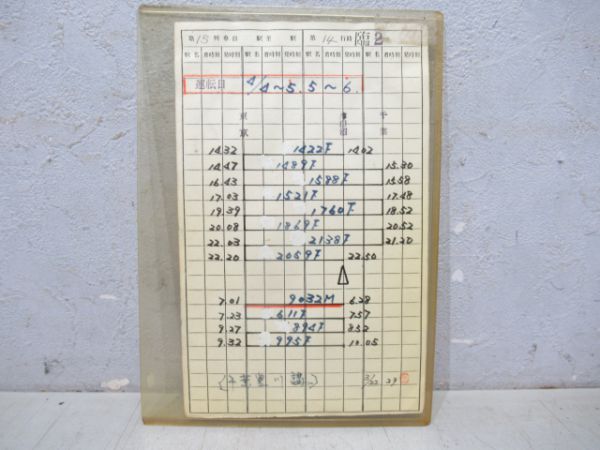 第 15 列車自 駅至 駅 第 14 行路 臨2
駅名 着時刻 発時刻 駅名 着時刻 発時刻 駅名 着時刻 発時刻 駅名 着時刻 発時刻
運転日 4/4~5.5~6.
東 千
14.32 1422F 14.02
14.47 1489F 15.30
16.43 1588F 15.58
17.03 1521F 17.48
19.39 1760F 18.52
20.08 1869F 20.52
22.03 2138F 21.20
22.20 2059F 22.50
7.01 9032M 6.28
7.23 611F 7.57
9.27 894F 8.52
9.32 995F 10.05